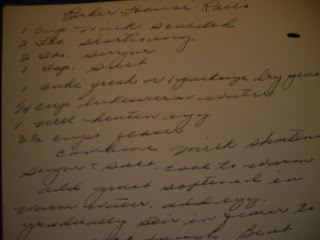 Parker House Rolls
1 cup milk scalded
2 Tbs. Shortening
2 Tbs. Sugar
1 tsp. Salt
1 cake fresh or 1 package dry yeast
1/4 cup lukewarm water
1 well beaten egg
3 1/2 cups flour
Combine milk, shortening
sugar & salt. cool to warm
add yeast softened in
warm water, add egg.
gradually stir in flour to
dough. Beat